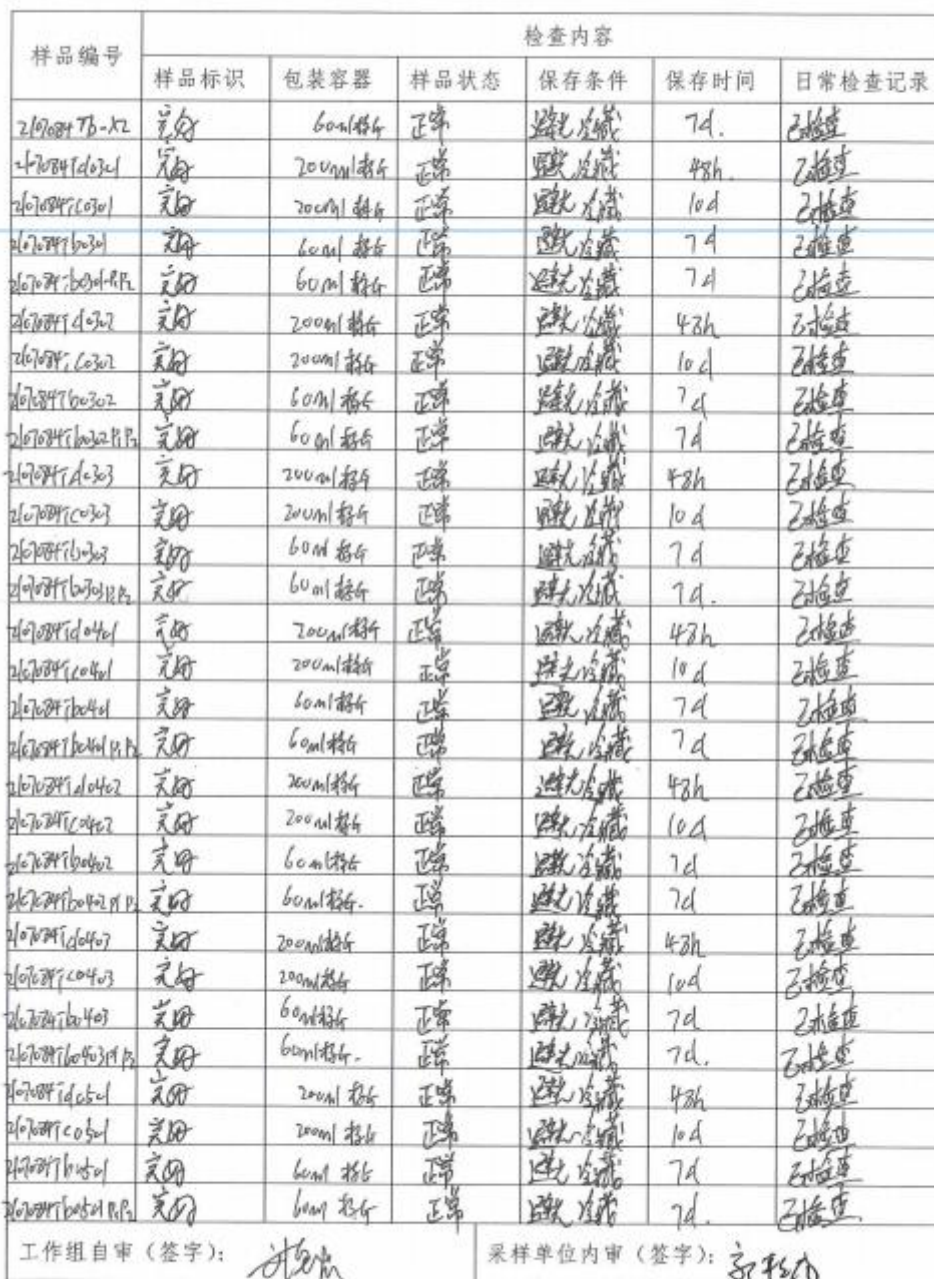 样品编号 检查内容
样品标识 包装容器 样品状态 保存条件 保存时间 日常检查记录
2107084Tb-X2 完好 60ml棕色 正常 避光冷藏 7d. 已检查
2107084Td0301 完好 200ml棕色 正常 避光冷藏 48h. 已检查
2107084Tc0301 完好 200ml棕色 正常 避光冷藏 10d 已检查
2107084Tb0301 完好 60ml棕色 正常 避光冷藏 7d 已检查
2107084Tb0301-P1P2 完好 60ml棕色 正常 避光冷藏 7d 已检查
2107084Td0302 完好 200ml棕色 正常 避光冷藏 48h 已检查
2107084Tc0302 完好 200ml棕色 正常 避光冷藏 10d 已检查
2107084Tb0302 完好 60ml棕色 正常 避光冷藏 7d 已检查
2107084Tb0302P1P2 完好 60ml棕色 正常 避光冷藏 7d 已检查
2107084Td0303 完好 200ml棕色 正常 避光冷藏 48h 已检查
2107084Tc0303 完好 200ml棕色 正常 避光冷藏 10d 已检查
2107084Tb0303 完好 60ml棕色 正常 避光冷藏 7d 已检查
2107084Tb0303P1P2 完好 60ml棕色 正常 避光冷藏 7d. 已检查
2107084Td0401 完好 200ml棕色 正常 避光冷藏 48h 已检查
2107084Tc0401 完好 200ml棕色 正常 避光冷藏 10d 已检查
2107084Tb0401 完好 60ml棕色 正常 避光冷藏 7d 已检查
2107084Tb0401P1P2 完好 60ml棕色 正常 避光冷藏 7d 已检查
2107084Td0402 完好 200ml棕色 正常 避光冷藏 48h 已检查
2107084Tc0402 完好 200ml棕色 正常 避光冷藏 10d 已检查
2107084Tb0402 完好 60ml棕色 正常 避光冷藏 7d 已检查
2107084Tb0402P1P2 完好 60ml棕色. 正常 避光冷藏 7d 已检查
2107084Td0403 完好 200ml棕色 正常 避光冷藏 48h 已检查
2107084Tc0403 完好 200ml棕色 正常 避光冷藏 10d 已检查
2107084Tb0403 完好 60ml棕色 正常 避光冷藏 7d 已检查
2107084Tb0403P1P2 完好 60ml棕色. 正常 避光冷藏 7d. 已检查
2107084Td0501 完好 200ml棕色 正常 避光冷藏 48h 已检查
2107084Tc0501 完好 200ml棕色 正常 避光冷藏 10d 已检查
2107084Tb0501 完好 60ml棕色 正常 避光冷藏 7d 已检查
2107084Tb0501P1P2 完好 60ml棕色 正常 避光冷藏 7d. 已检查
工作组自审（签字）： 采样单位内审（签字）：